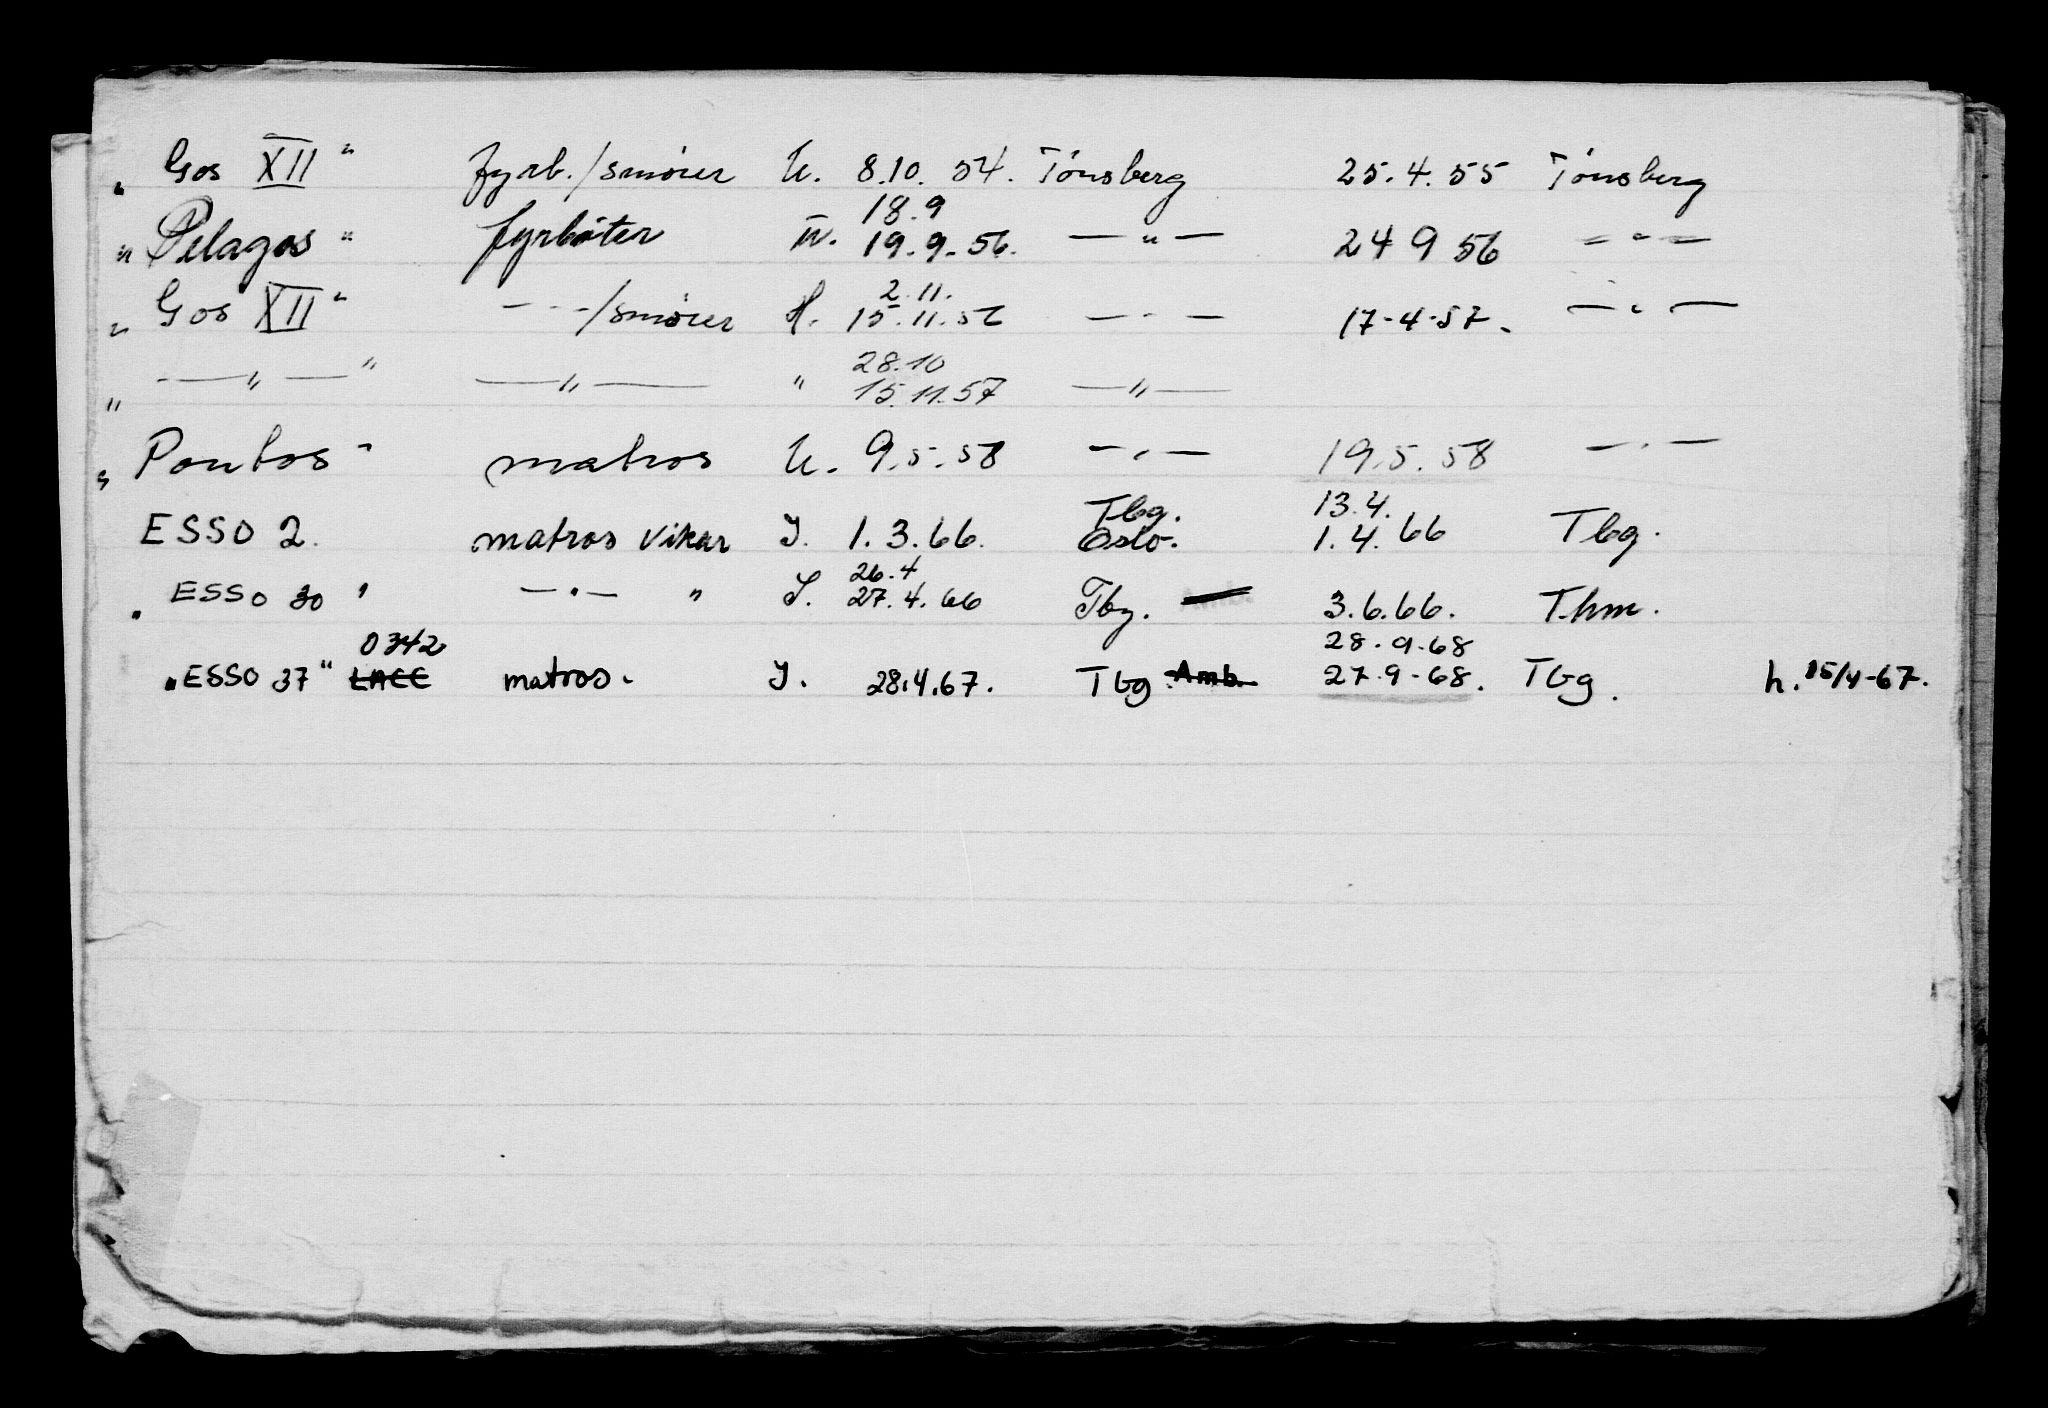 „ Gos XII" fyrb./smører U. 8.10. 54. Tönsberg 25.4.55 Tönsberg
18.9
„ Pelagos" fyrbøter 19.9.56. —"— 24 9 56 —"—
2.11.
„ Gos XII" —"—/smører H. 15.11.56 —"— 17-4-57. —"—
28.10
„ —"—" —"— " 15.11.57 —"—
„ Pontos" matros U. 9.5.58 —"— 19.5.58 —"—
Tbg. 13.4.
ESSO 2. matros vikar Y. 1.3.66. Oslo. 1.4.66 Tbg.
26.4
„ ESSO 30 " —"— " 27.4.66 Tbg. 3.6.66. Thm.
0342 28.9.68
„ ESSO 37" matros. Y. 28.4.67. Tbg. Amb. 27.9-68. Tbg. h. 15/4-67.